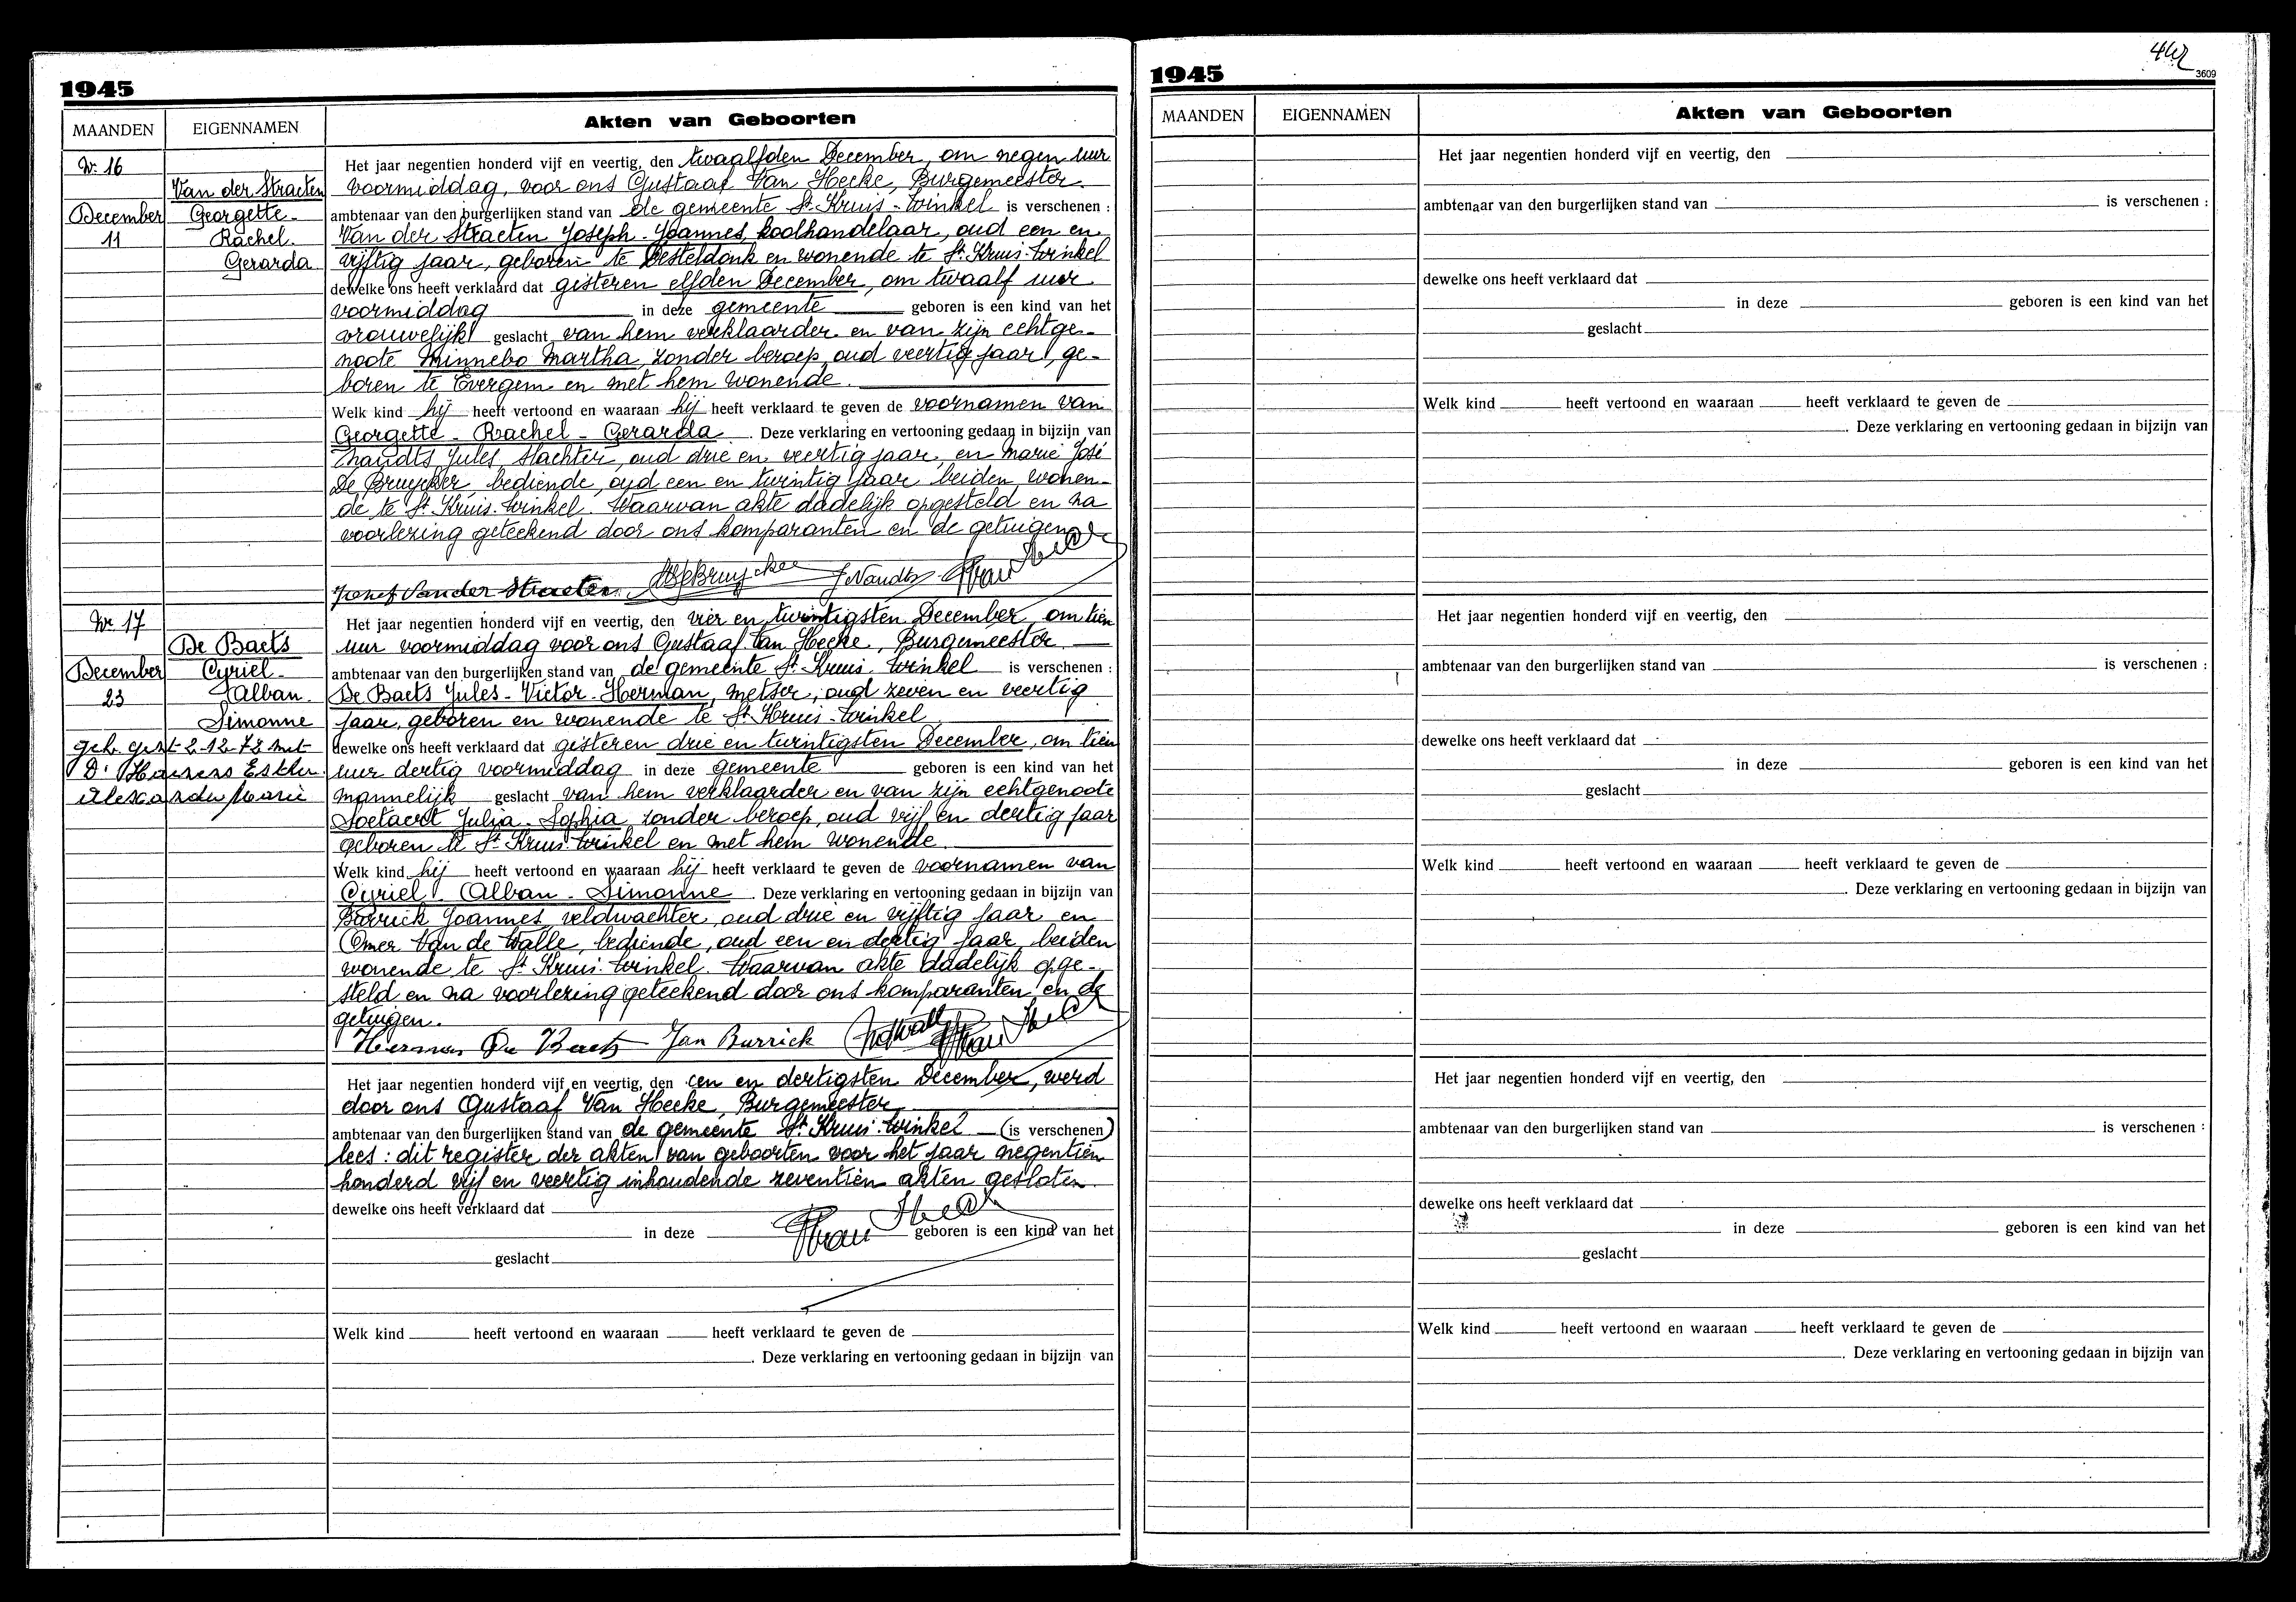 1945
MAANDEN EIGENNAMEN Akten van Geboorten
Nr. 16
Van der Straeten
December Georgette-
11 Rachel-
Gerarda
Het jaar negentien honderd vijf en veertig, den twaalfden December, om negen uur
voormiddag, voor ons Gustaaf Van Hecke, Burgemeester
ambtenaar van den burgerlijken stand van de gemeente St Kruis-Winkel is verschenen :
Van der Straeten Joseph-Joannes, koolhandelaar, oud een en
vijftig jaar, geboren te Desteldonk en wonende te St Kruis-Winkel
dewelke ons heeft verklaard dat gisteren elfden December, om twaalf uur
voormiddag in deze gemeente geboren is een kind van het
vrouwelijk geslacht van hem verklaarder en van zijn echtge-
noote Minnebo Martha, zonder beroep, oud veertig jaar, ge-
boren te Evergem en met hem wonende.
Welk kind hij heeft vertoond en waaraan hij heeft verklaard te geven de voornamen van
Georgette - Rachel - Gerarda. Deze verklaring en vertooning gedaan in bijzijn van
Naudts Jules, slachter, oud drie en veertig jaar, en Marie José
De Bruycker, bediende, oud een en twintig jaar, beiden wonen-
de te St Kruis-Winkel. Waarvan akte dadelijk opgesteld en na
voorlezing geteekend door ons komparanten en de getuigen
Josef Van der Straeten DeBruycker J. Naudts
Nr 17
De Baets
December Cyriel-
23 Alban-
Simonne
geh. gent 2-12-72 met
D' Haenens Esther
Alexander Marie
Het jaar negentien honderd vijf en veertig, den vier en twintigsten December, om tien
uur voormiddag voor ons Gustaaf Van Hecke, Burgemeester
ambtenaar van den burgerlijken stand van de gemeente St Kruis-Winkel is verschenen :
De Baets Jules-Victor-Herman, metser, oud zeven en veertig
jaar, geboren en wonende te St Kruis-Winkel
dewelke ons heeft verklaard dat gisteren drie en twintigsten December, om tien
uur dertig voormiddag in deze gemeente geboren is een kind van het
mannelijk geslacht van hem verklaarder en van zijn echtgenoote
Soetaert Julia-Sophia, zonder beroep, oud vijf en dertig jaar
geboren te St Kruis-Winkel en met hem wonende
Welk kind hij heeft vertoond en waaraan hij heeft verklaard te geven de voornamen van
Cyriel - Alban - Simonne. Deze verklaring en vertooning gedaan in bijzijn van
Burrick Joannes, veldwachter, oud drie en vijftig jaar en
Omer Van de Walle, bediende, oud een en dertig jaar, beiden
wonende te St Kruis-Winkel. Waarvan akte dadelijk opge-
steld en na voorlezing geteekend door ons komparanten en de
getuigen.
Herman De Baets Jan Burrick
Het jaar negentien honderd vijf en veertig, den een en dertigsten December, werd
door ons Gustaaf Van Hecke, Burgemeester
ambtenaar van den burgerlijken stand van de gemeente St Kruis-Winkel (is verschenen)
lees : dit register der akten van geboorten voor het jaar negentien
honderd vijf en veertig inhoudende zeventien akten gesloten
dewelke ons heeft verklaard dat
in deze geboren is een kind van het
geslacht
Welk kind heeft vertoond en waaraan heeft verklaard te geven de
. Deze verklaring en vertooning gedaan in bijzijn van
3609
1945
MAANDEN EIGENNAMEN Akten van Geboorten
Het jaar negentien honderd vijf en veertig, den
ambtenaar van den burgerlijken stand van is verschenen :
dewelke ons heeft verklaard dat
in deze geboren is een kind van het
geslacht
Welk kind heeft vertoond en waaraan heeft verklaard te geven de
. Deze verklaring en vertooning gedaan in bijzijn van
Het jaar negentien honderd vijf en veertig, den
ambtenaar van den burgerlijken stand van is verschenen :
dewelke ons heeft verklaard dat
in deze geboren is een kind van het
geslacht
Welk kind heeft vertoond en waaraan heeft verklaard te geven de
. Deze verklaring en vertooning gedaan in bijzijn van
Het jaar negentien honderd vijf en veertig, den
ambtenaar van den burgerlijken stand van is verschenen :
dewelke ons heeft verklaard dat
in deze geboren is een kind van het
geslacht
Welk kind heeft vertoond en waaraan heeft verklaard te geven de
. Deze verklaring en vertooning gedaan in bijzijn van